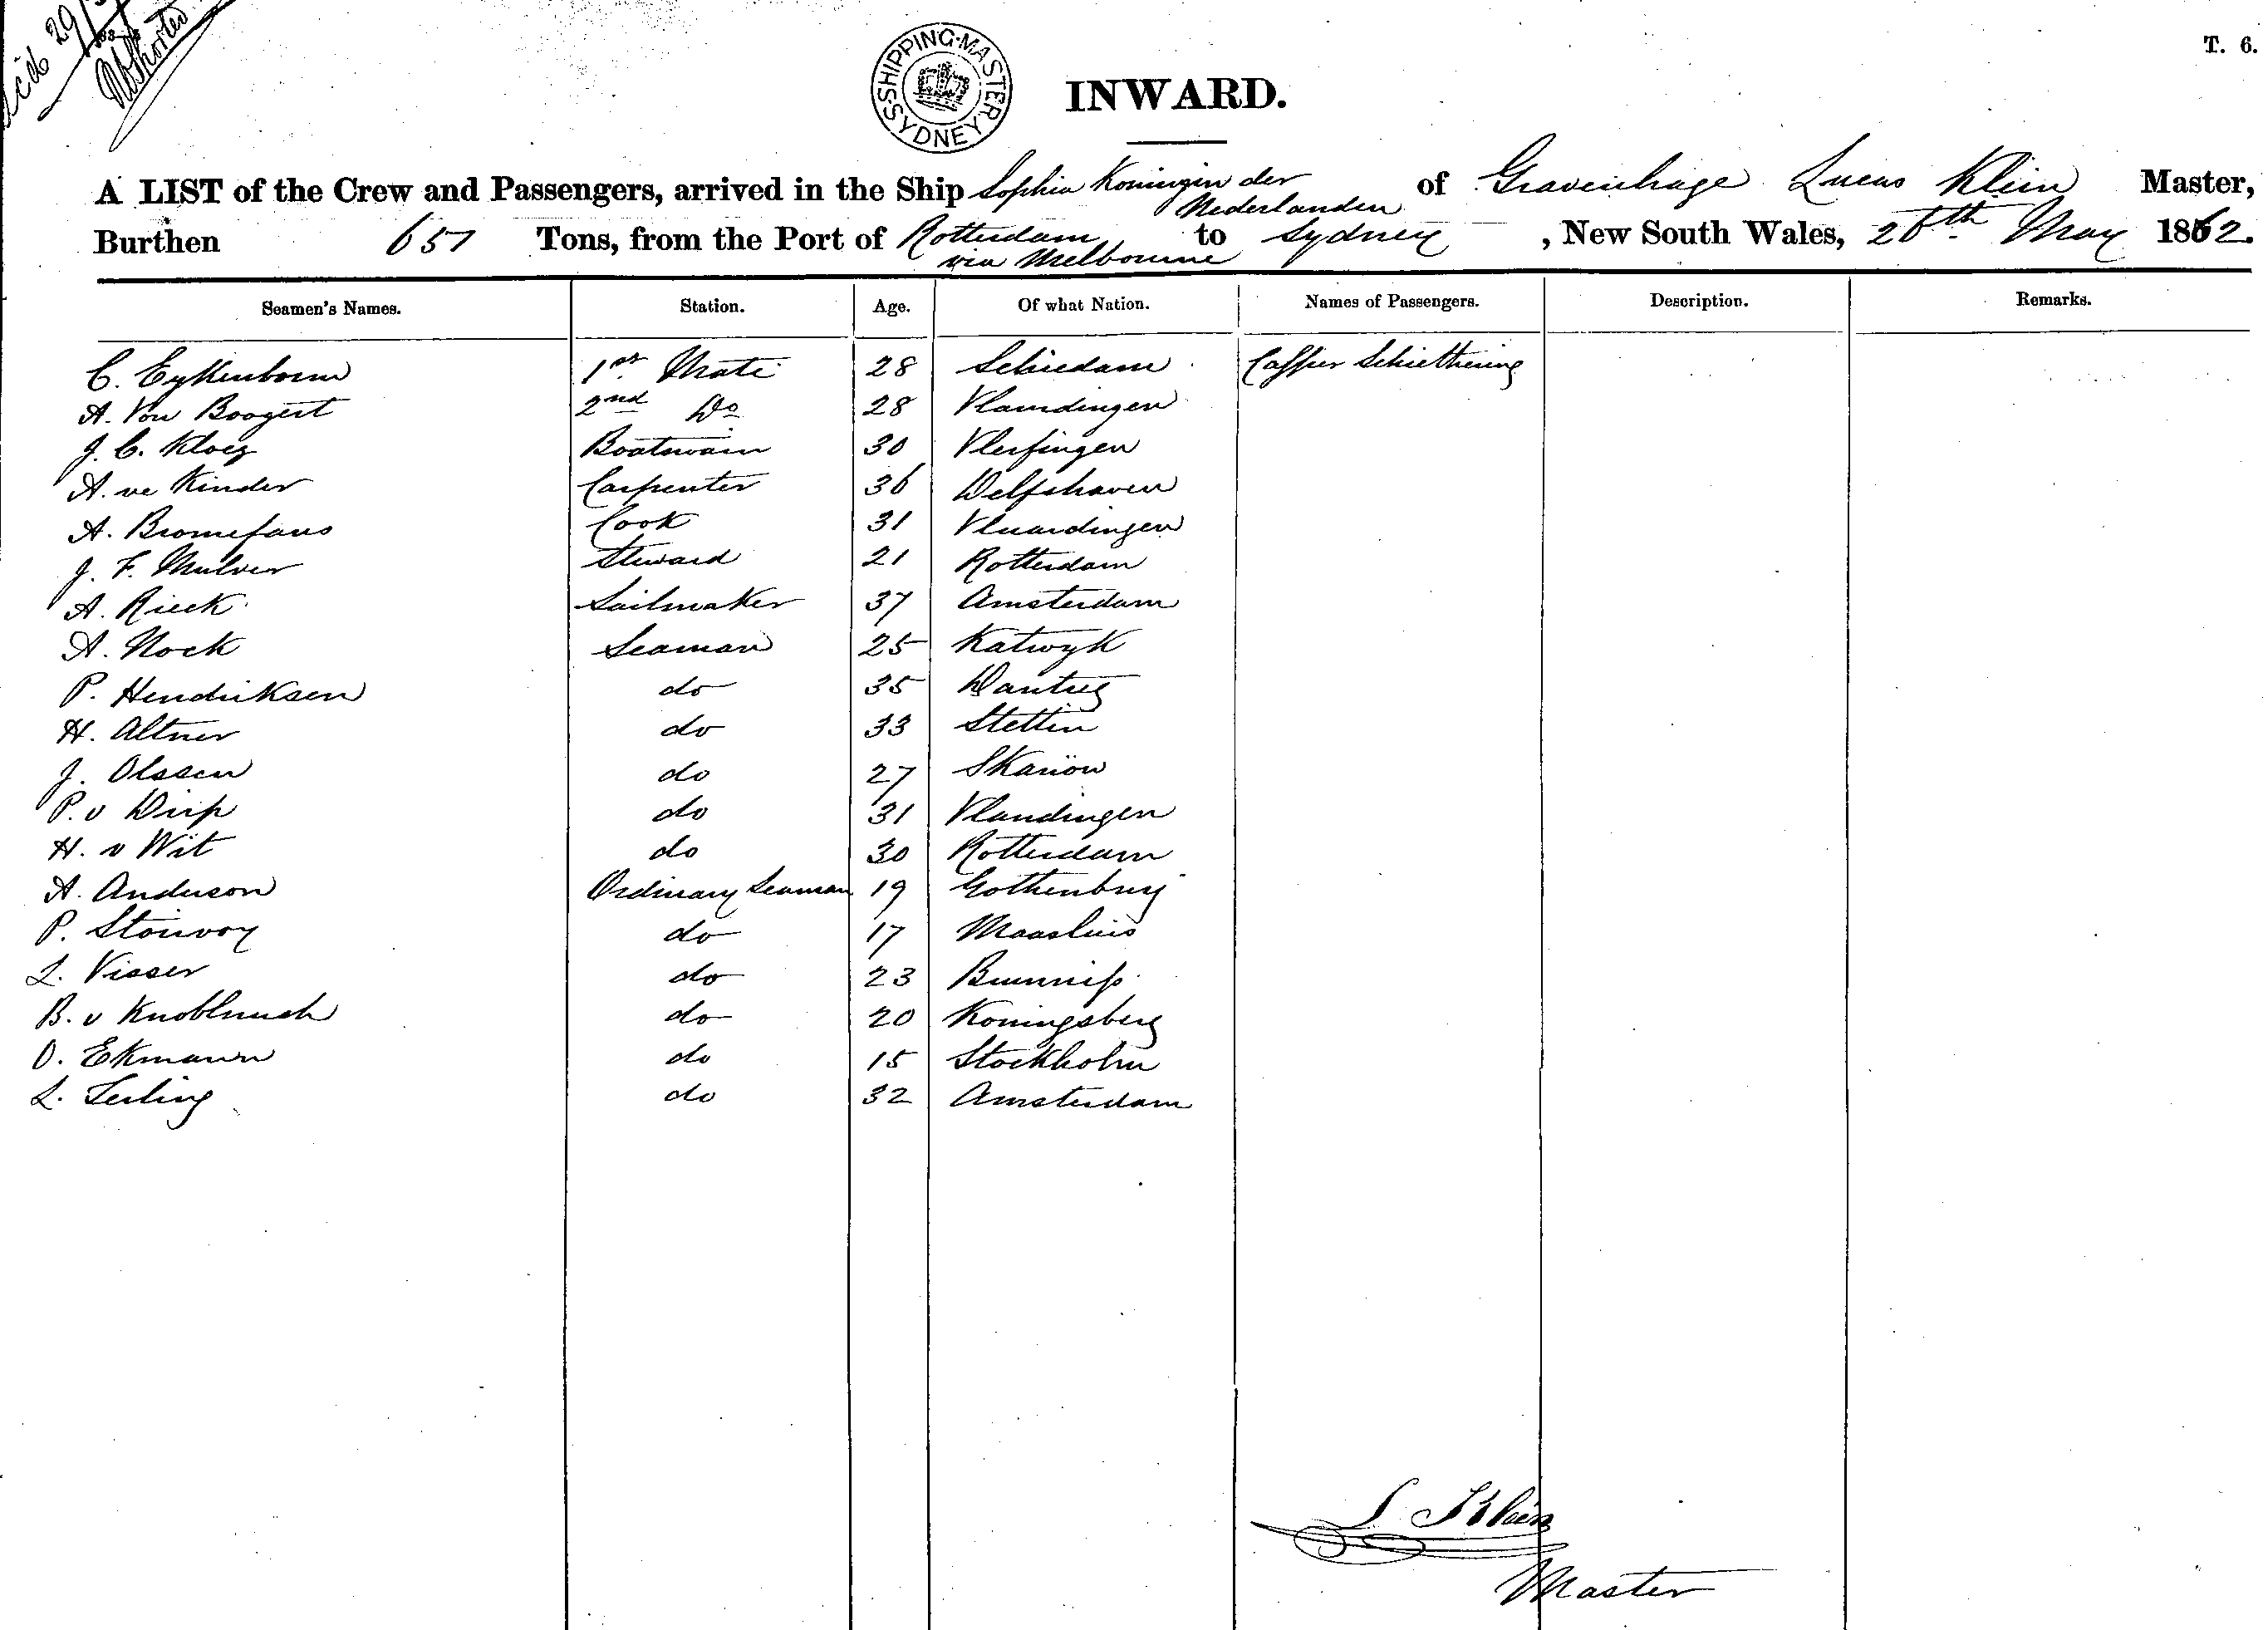 T. 6.
SHIPPING MASTER SYDNEY
INWARD.
A LIST of the Crew and Passengers, arrived in the Ship Sophia Koningin der Nederlanden of Gravenhage Lucas Klein Master,
Burthen 657 Tons, from the Port of Rotterdam via Melbourne to Sydney, New South Wales, 26th May 1862.
Seamen's Names. Station. Age. Of what Nation. Names of Passengers. Description. Remarks.
C. Eykenboom 1st Mate 28 Schiedam
A. Von Boogert 2nd Do 28
J. C. Kloeg Boatswain 30
A. ve Kinder Carpenter 36 Delfshaven
A. Cook 31
J. F. Mulver Steward 21 Rotterdam
A. Rieck Sailmaker 37 Amsterdam
A. Nock Seaman 25 Katwyk
P. Hendriksen do 35 Dantzig
H. Altner do 33 Stettin
J. Olssen do 27
P. v Dirp do 31
H. v Wit do 30 Rotterdam
A. Anderson Ordinary Seaman 19 Gothenburg
P. do 17 Maasluis
L. Visser do 23
B. v do 20 Koningsberg
O. Ekmann do 15 Stockholm
L. Terling do 32 Amsterdam
L Klein
Master